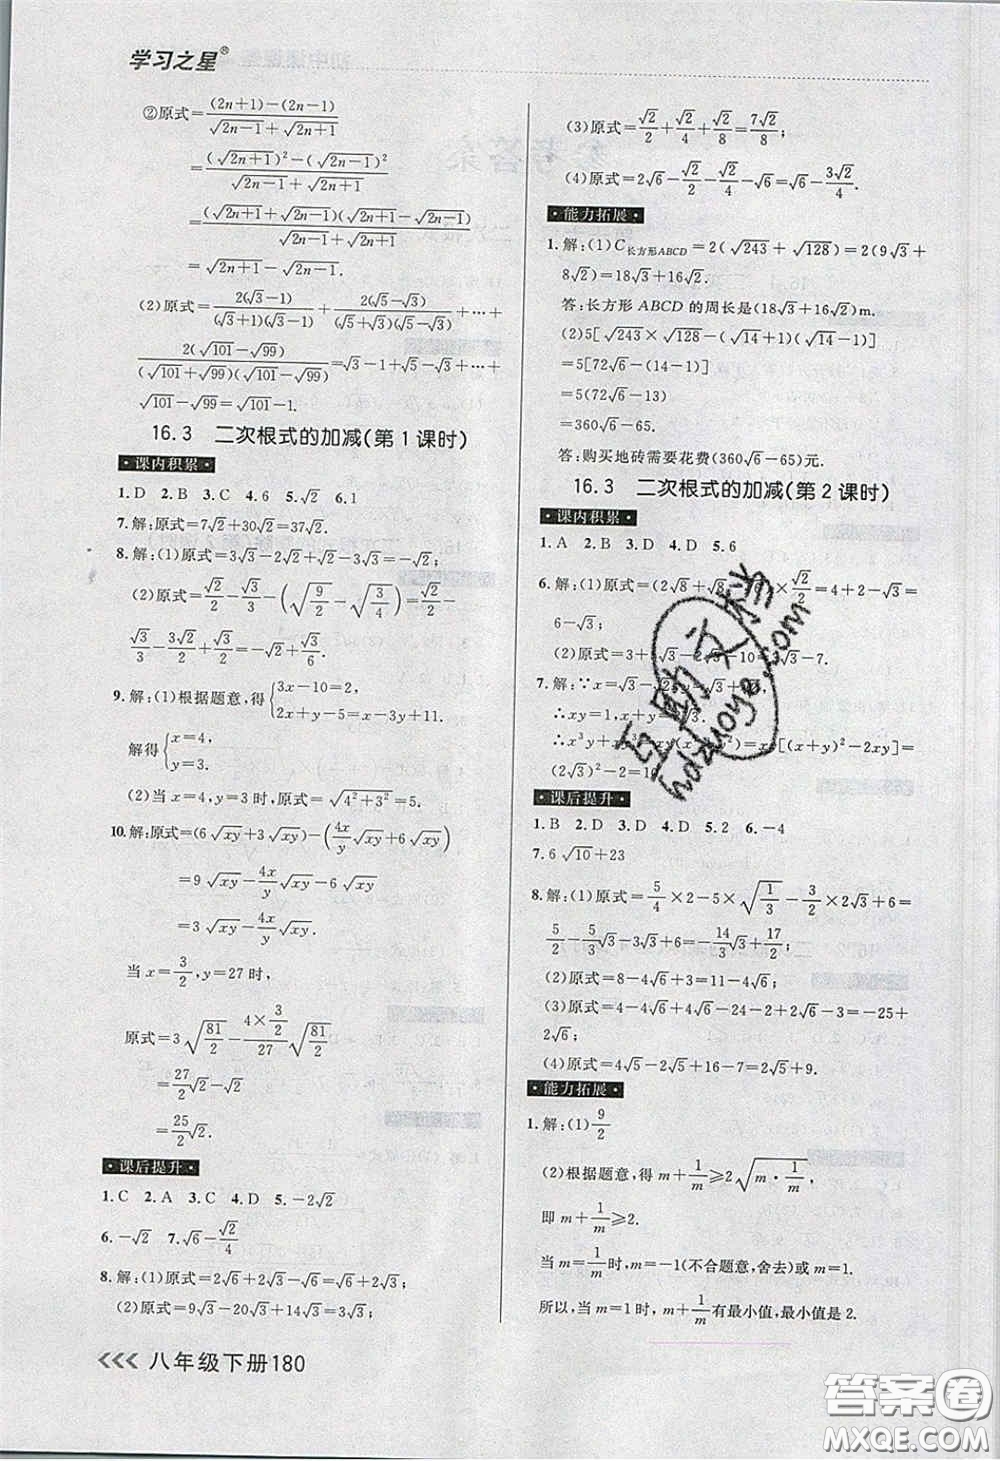 学习之星®
②原式=\frac{(2n+1)-(2n-1)}{√(2n-1)+√(2n+1)}
=\frac{(√(2n+1))²-(√(2n-1))²}{√(2n-1)+√(2n+1)}
=\frac{(√(2n+1)+√(2n-1))(√(2n+1)-√(2n-1))}{√(2n-1)+√(2n+1)}
=√(2n+1)-√(2n-1).
(2)原式=\frac{2(√3-1)}{(√3+1)(√3-1)}+\frac{2(√5-√3)}{(√5+√3)(√5-√3)}+…+
\frac{2(√101-√99)}{(√101+√99)(√101-√99)}=√3-1+√5-√3+…+
√101-√99=√101-1.
16.3 二次根式的加减(第1课时)
课内积累
1.D 2.B 3.C 4.6 5.√2 6.1
7.解:原式=7√2+30√2=37√2.
8.解:(1)原式=3√3-2√2+√2-3√3=-√2.
(2)原式=\frac{√2}{2}-\frac{√3}{3}-(√\frac{9}{2}-√\frac{3}{4})=\frac{√2}{2}-
\frac{√3}{3}-\frac{3√2}{2}+\frac{√3}{2}=-√2+\frac{√3}{6}.
9.解:(1)根据题意,得{3x-10=2,
2x+y-5=x-3y+11.
解得{x=4,
y=3.
(2)当x=4,y=3时,原式=√(4²+3²)=5.
10.解:原式=(6√xy+3√xy)-(\frac{4x}{y}√xy+6√xy)
=9√xy-\frac{4x}{y}√xy-6√xy
=3√xy-\frac{4x}{y}√xy.
当x=\frac{3}{2},y=27时,
原式=3√\frac{81}{2}-\frac{4×\frac{3}{2}}{27}√\frac{81}{2}
=\frac{27}{2}√2-√2
=\frac{25}{2}√2.
课后提升
1.C 2.A 3.C 4.D 5.-2√2
6.-√2 7.√6-\frac{√2}{4}
8.解:(1)原式=2√6+2√3-√6=√6+2√3;
(2)原式=9√3-20√3+14√3=3√3;
八年级下册180
(3)原式=\frac{√2}{2}+\frac{√2}{4}+\frac{√2}{8}=\frac{7√2}{8};
(4)原式=2√6-\frac{√2}{2}-\frac{√2}{4}-√6=√6-\frac{3√2}{4}.
能力拓展
1.解:(1)C长方形ABCD=2(√243+√128)=2(9√3+
8√2)=18√3+16√2.
答:长方形ABCD的周长是(18√3+16√2)m.
(2)5[√243×√128-(√14+1)(√14-1)]
=5[72√6-(14-1)]
=5(72√6-13)
=360√6-65.
答:购买地砖需要花费(360√6-65)元.
16.3 二次根式的加减(第2课时)
课内积累
1.A 2.B 3.D 4.D 5.6
6.解:(1)原式=(2√8+√8 ×\frac{√2}{2}=4+2-√3=
6-√3;
(2)原式=3+ √3-2√3-10= √3-7.
7.解:∵x=√3-√2,y=
∴xy=1,x+y=
∴x³y+ =xy[(x+y)²-2xy]=
(2√3)²-2=10
课后提升
1.B 2.D 3.D 4.D 5.2 6.-4
7.6√10+23
8.解:(1)原式=\frac{5}{4}×2-5×√\frac{1}{3}-\frac{3}{2}×2√3+6=
\frac{5}{2}-\frac{5}{3}√3-3√3+6=-\frac{14}{3}√3+\frac{17}{2};
(2)原式=8-4√6+3=11-4√6;
(3)原式=4-4√6+4√6-24-2+2√6-3=-25+
2√6;
(4)原式=4√5-2√5+16-7=2√5+9.
能力拓展
1.解:(1)\frac{9}{2}
(2)根据题意,得m+\frac{1}{m}≥2√(m·\frac{1}{m}),
即m+\frac{1}{m}≥2.
当m=\frac{1}{m}时,m=-1(不合题意,舍去)或m=1.
所以,当m=1时,m+\frac{1}{m}有最小值,最小值是2.
互助文档
hdzuoye.com
答案圈
MXQE.COM